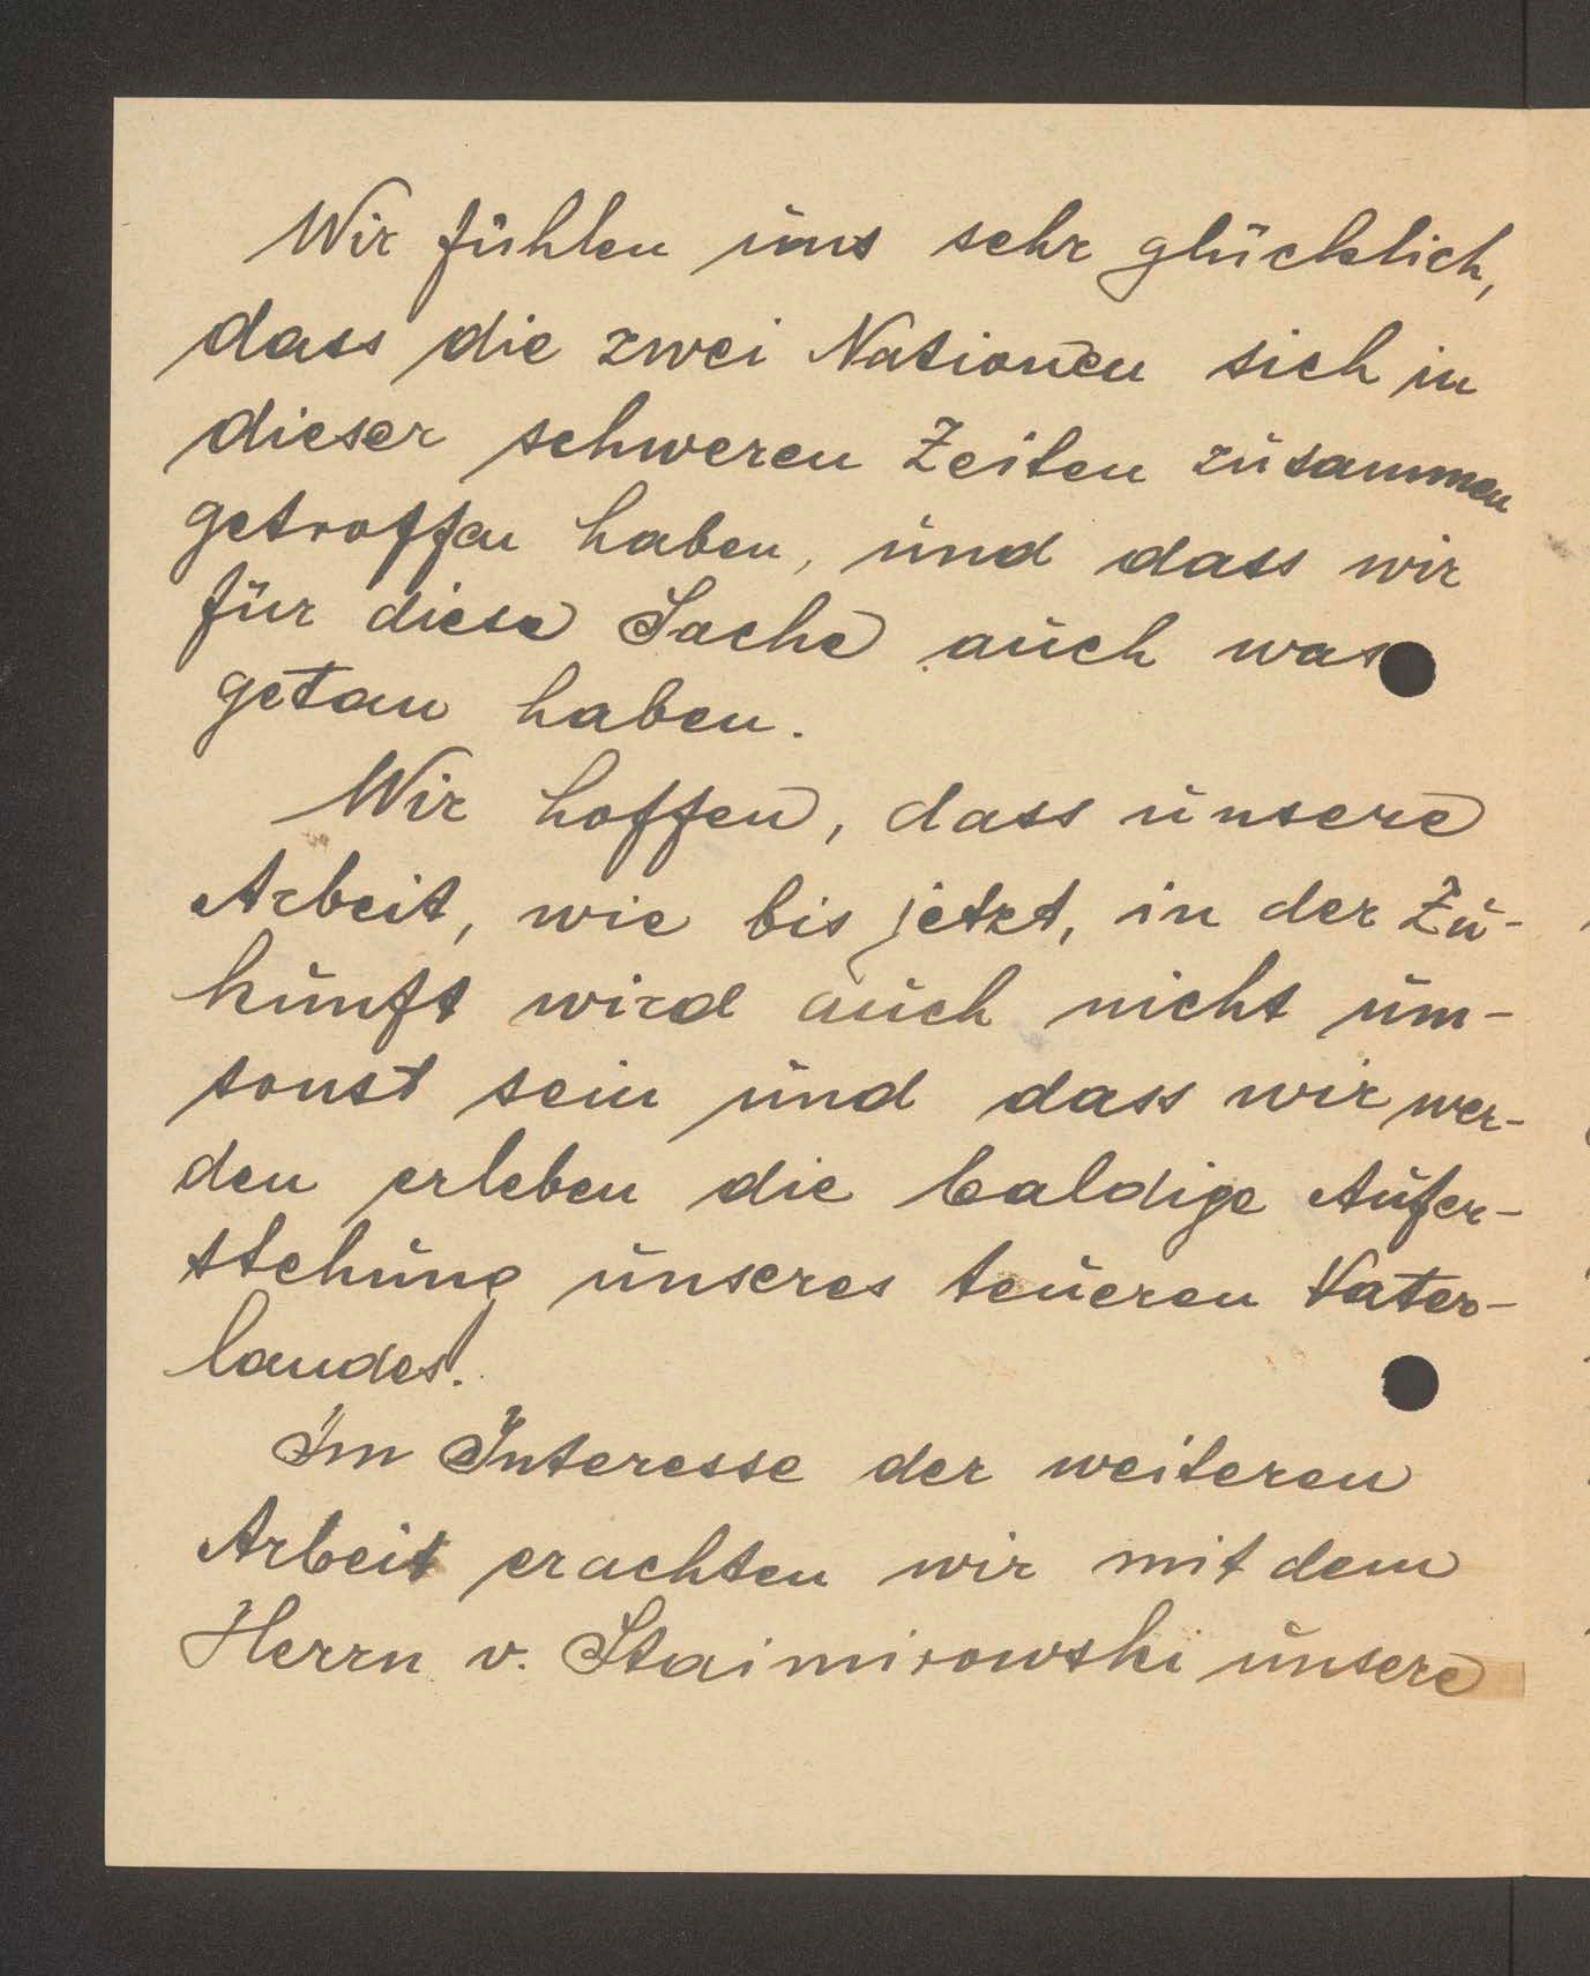 Wir fühlen uns sehr glücklich,
dass die zwei Nationen sich in
dieser schweren Zeiten zusammen
getroffen haben, und dass wir
für diese Sache auch was
getan haben.
Wir hoffen, dass unsere
Arbeit, wie bis jetzt, in der Zu-
kunft wird auch nicht um-
sonst sein und dass wir wer-
den erleben die baldige Aufer-
stehung unseres teueren Vater-
landes!
Im Interesse der weiteren
Arbeit erachten wir mit dem
Herrn v. Staimirowski unsere